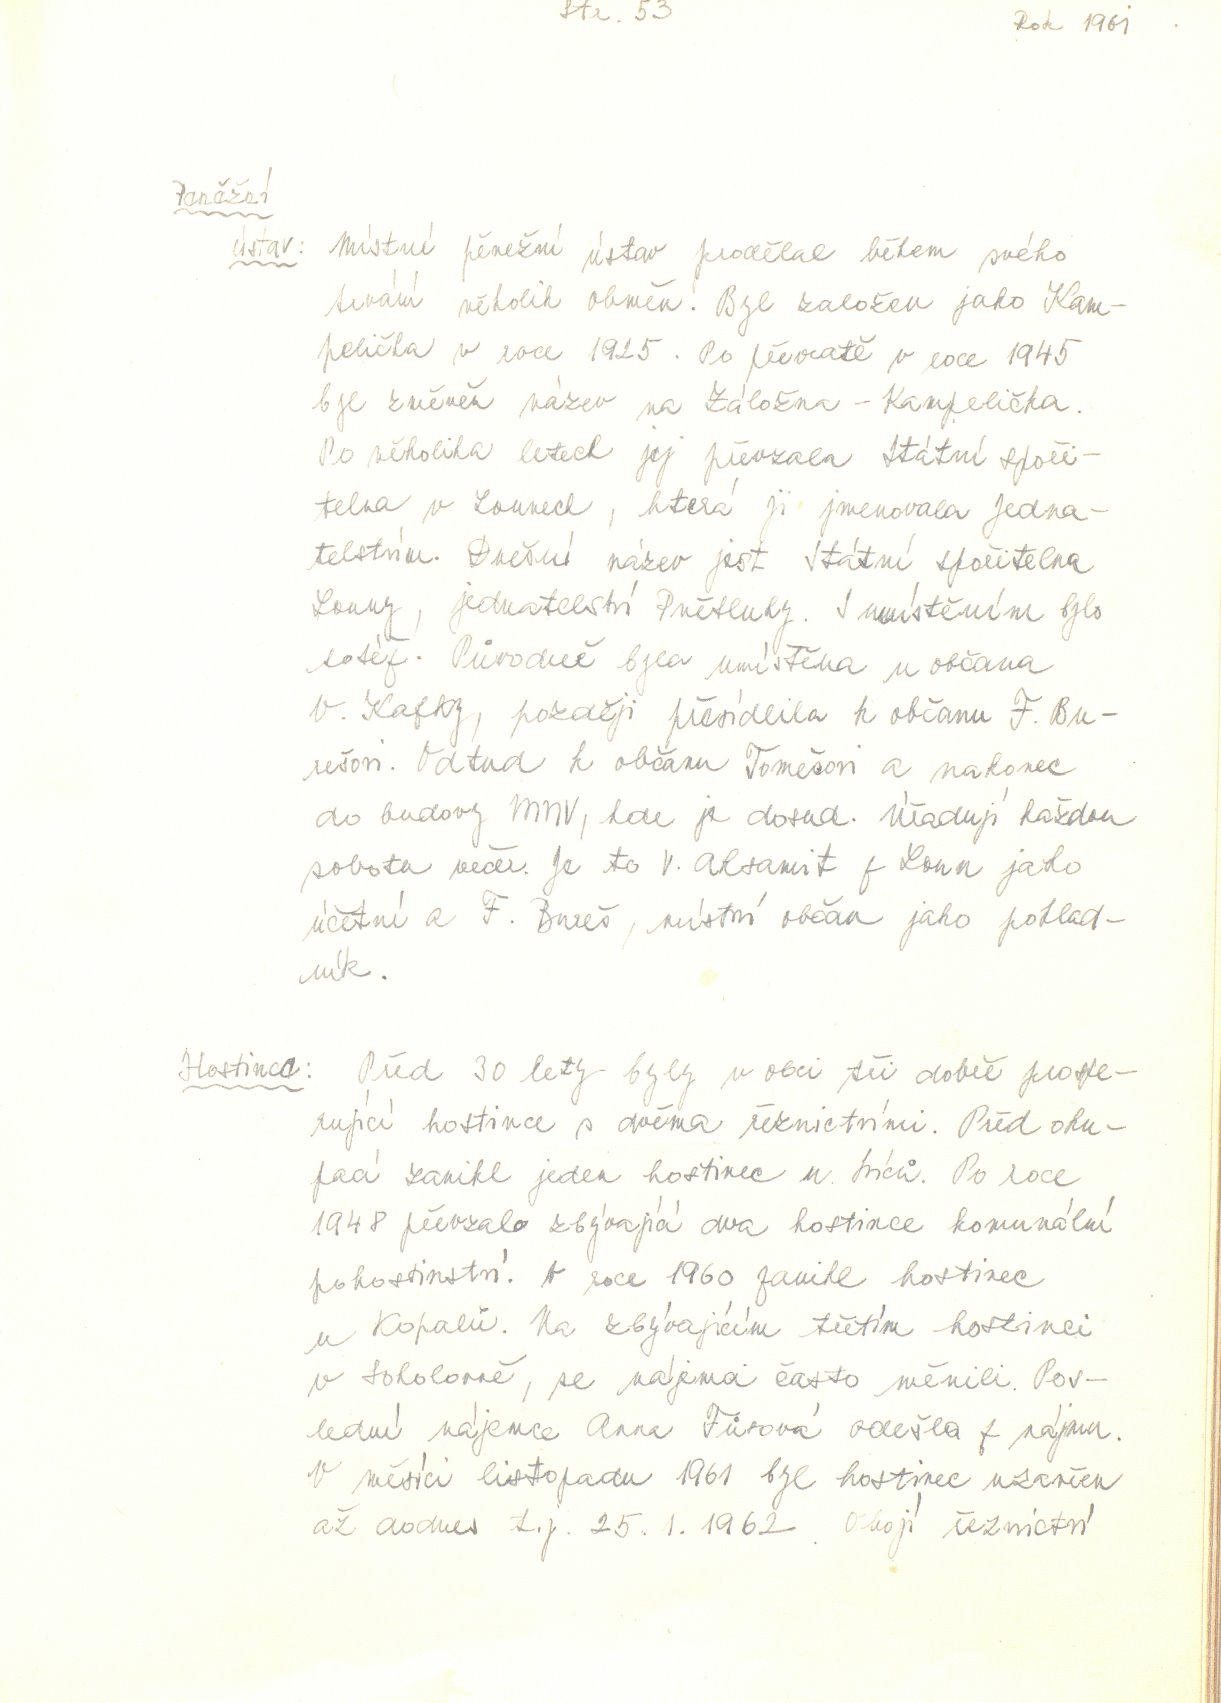 Str. 53
Rok 1961
Peněžní
ústav: Místní pěnežní ústav prodělal během svého
trvání několik obměn. Byl založen jako Kam-
pelička v roce 1925. Po převratě v roce 1945
byl změněn název na Záložna - Kampelička.
Po několika letech jej převzala Státní spoři-
telna v Lounech, která ji jmenovala Jedna-
telstvím. Dnešní název jest Státní spořitelna
Louny, jednatelství Pnětluky. S umístěním bylo
totéž. Původně byla umístěna u občana
V. Kafky, později přesídlila k občanu F. Bu-
rešovi. Odtud k občanu Tomešovi a nakonec
do budovy MNV, kde je dosud. Úřadují každou
sobotu večer. Je to V. Aksamit z Loun jako
účetní a F. Bureš, místní občan jako poklad-
ník.
Hostince: Před 30 lety byly v obci tři dobře prospe-
rující hostince s dvěma řeznictvími. Před oku-
pací zanikl jeden hostinec u. Na roce
1948 převzalo zbývající dva hostince komunální
pohostinství. V roce 1960 zanikl hostinec
u Kopalů. Na zbývajícím třetím hostinci
v Sokolovně, se nájemci často měnili. Pos-
lední nájemce Anna Fůsová odešla z nájmu.
V měsíci listopadu 1961 byl hostinec uzavřen
až dodnes t.j. 25. 1. 1962. Obojí řeznictví